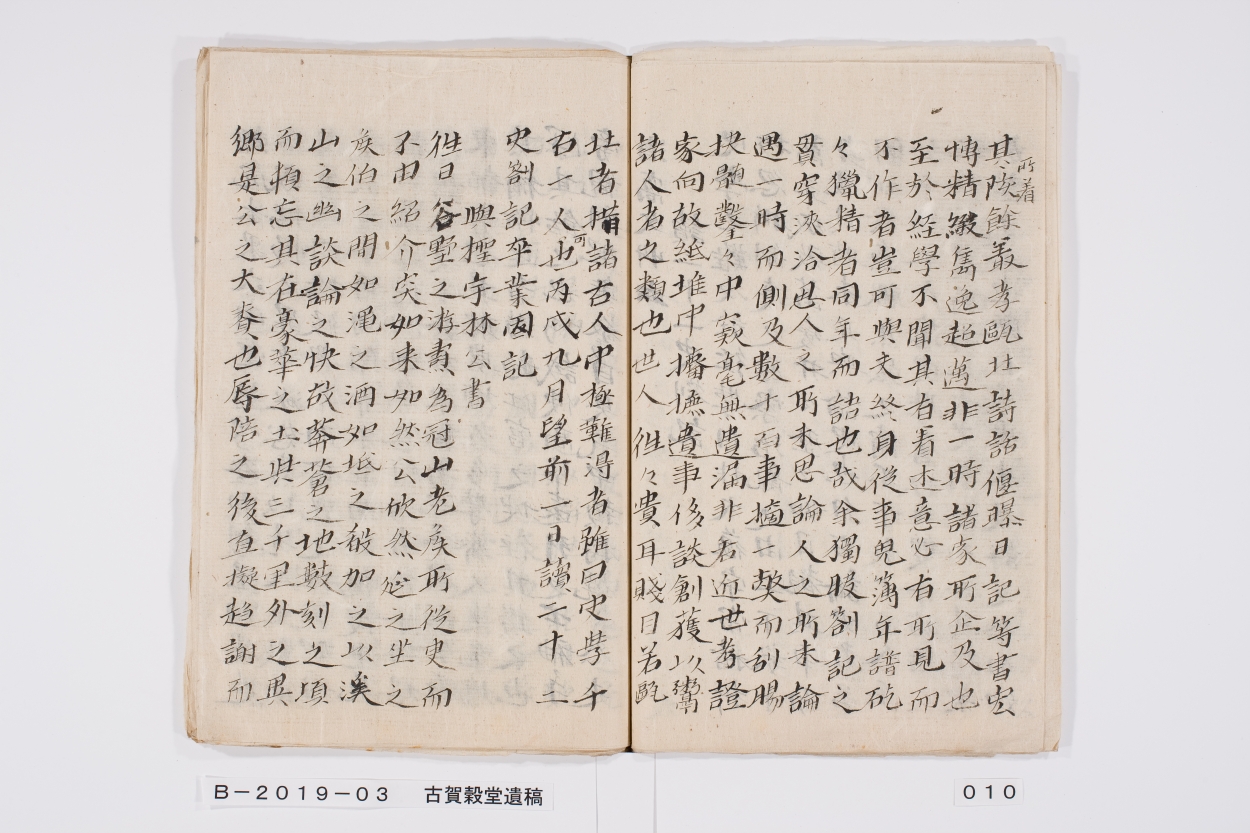 其所著陔餘叢考甌北詩話偃曝日記等書宏
博精緻雋逸超邁非一時諸家所企及也
至於経學不聞其有著述意必有所見而
不作者豈可與夫終身從事兔簿年譜矻
々獵精者同年而語也哉余獨服劄記之
貫穿浹洽思人之所未思論人之所未論
遇一時而側及數十百事摘一獘而刮腸
抉髓鑿々中窾毫無遺漏非若近世考證
家向故紙堆中攟摭遺事侈談創獲以鬻
諸人者之類也世人徃々貴耳賤目若甌
北者措諸古人中極難得者雖曰史學千
古一人可也丙戌九月望前二日讀二十二
史劄記卒業因記
與檉宇林公書
徃日谷墅之游責為冠山老矦所從臾而
不由紹介突如来如然公欣然延之坐之
矦伯之間如渑之酒如坻之殽加之以溪
山之幽談論之快哉莾蒼之地數刻之頃
而頓忘其在豪華之土此三千里外之異
郷是公之大賚也辱陪之後直擬趋謝而
B－2019－03　古賀穀堂遺稿
010